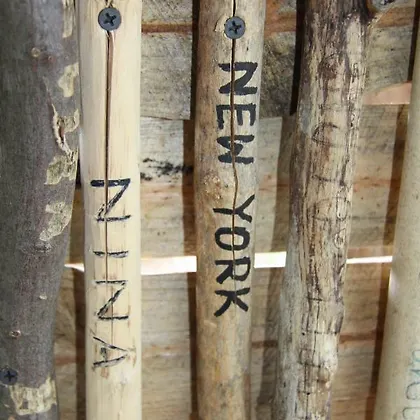 NINA
NEW YORK